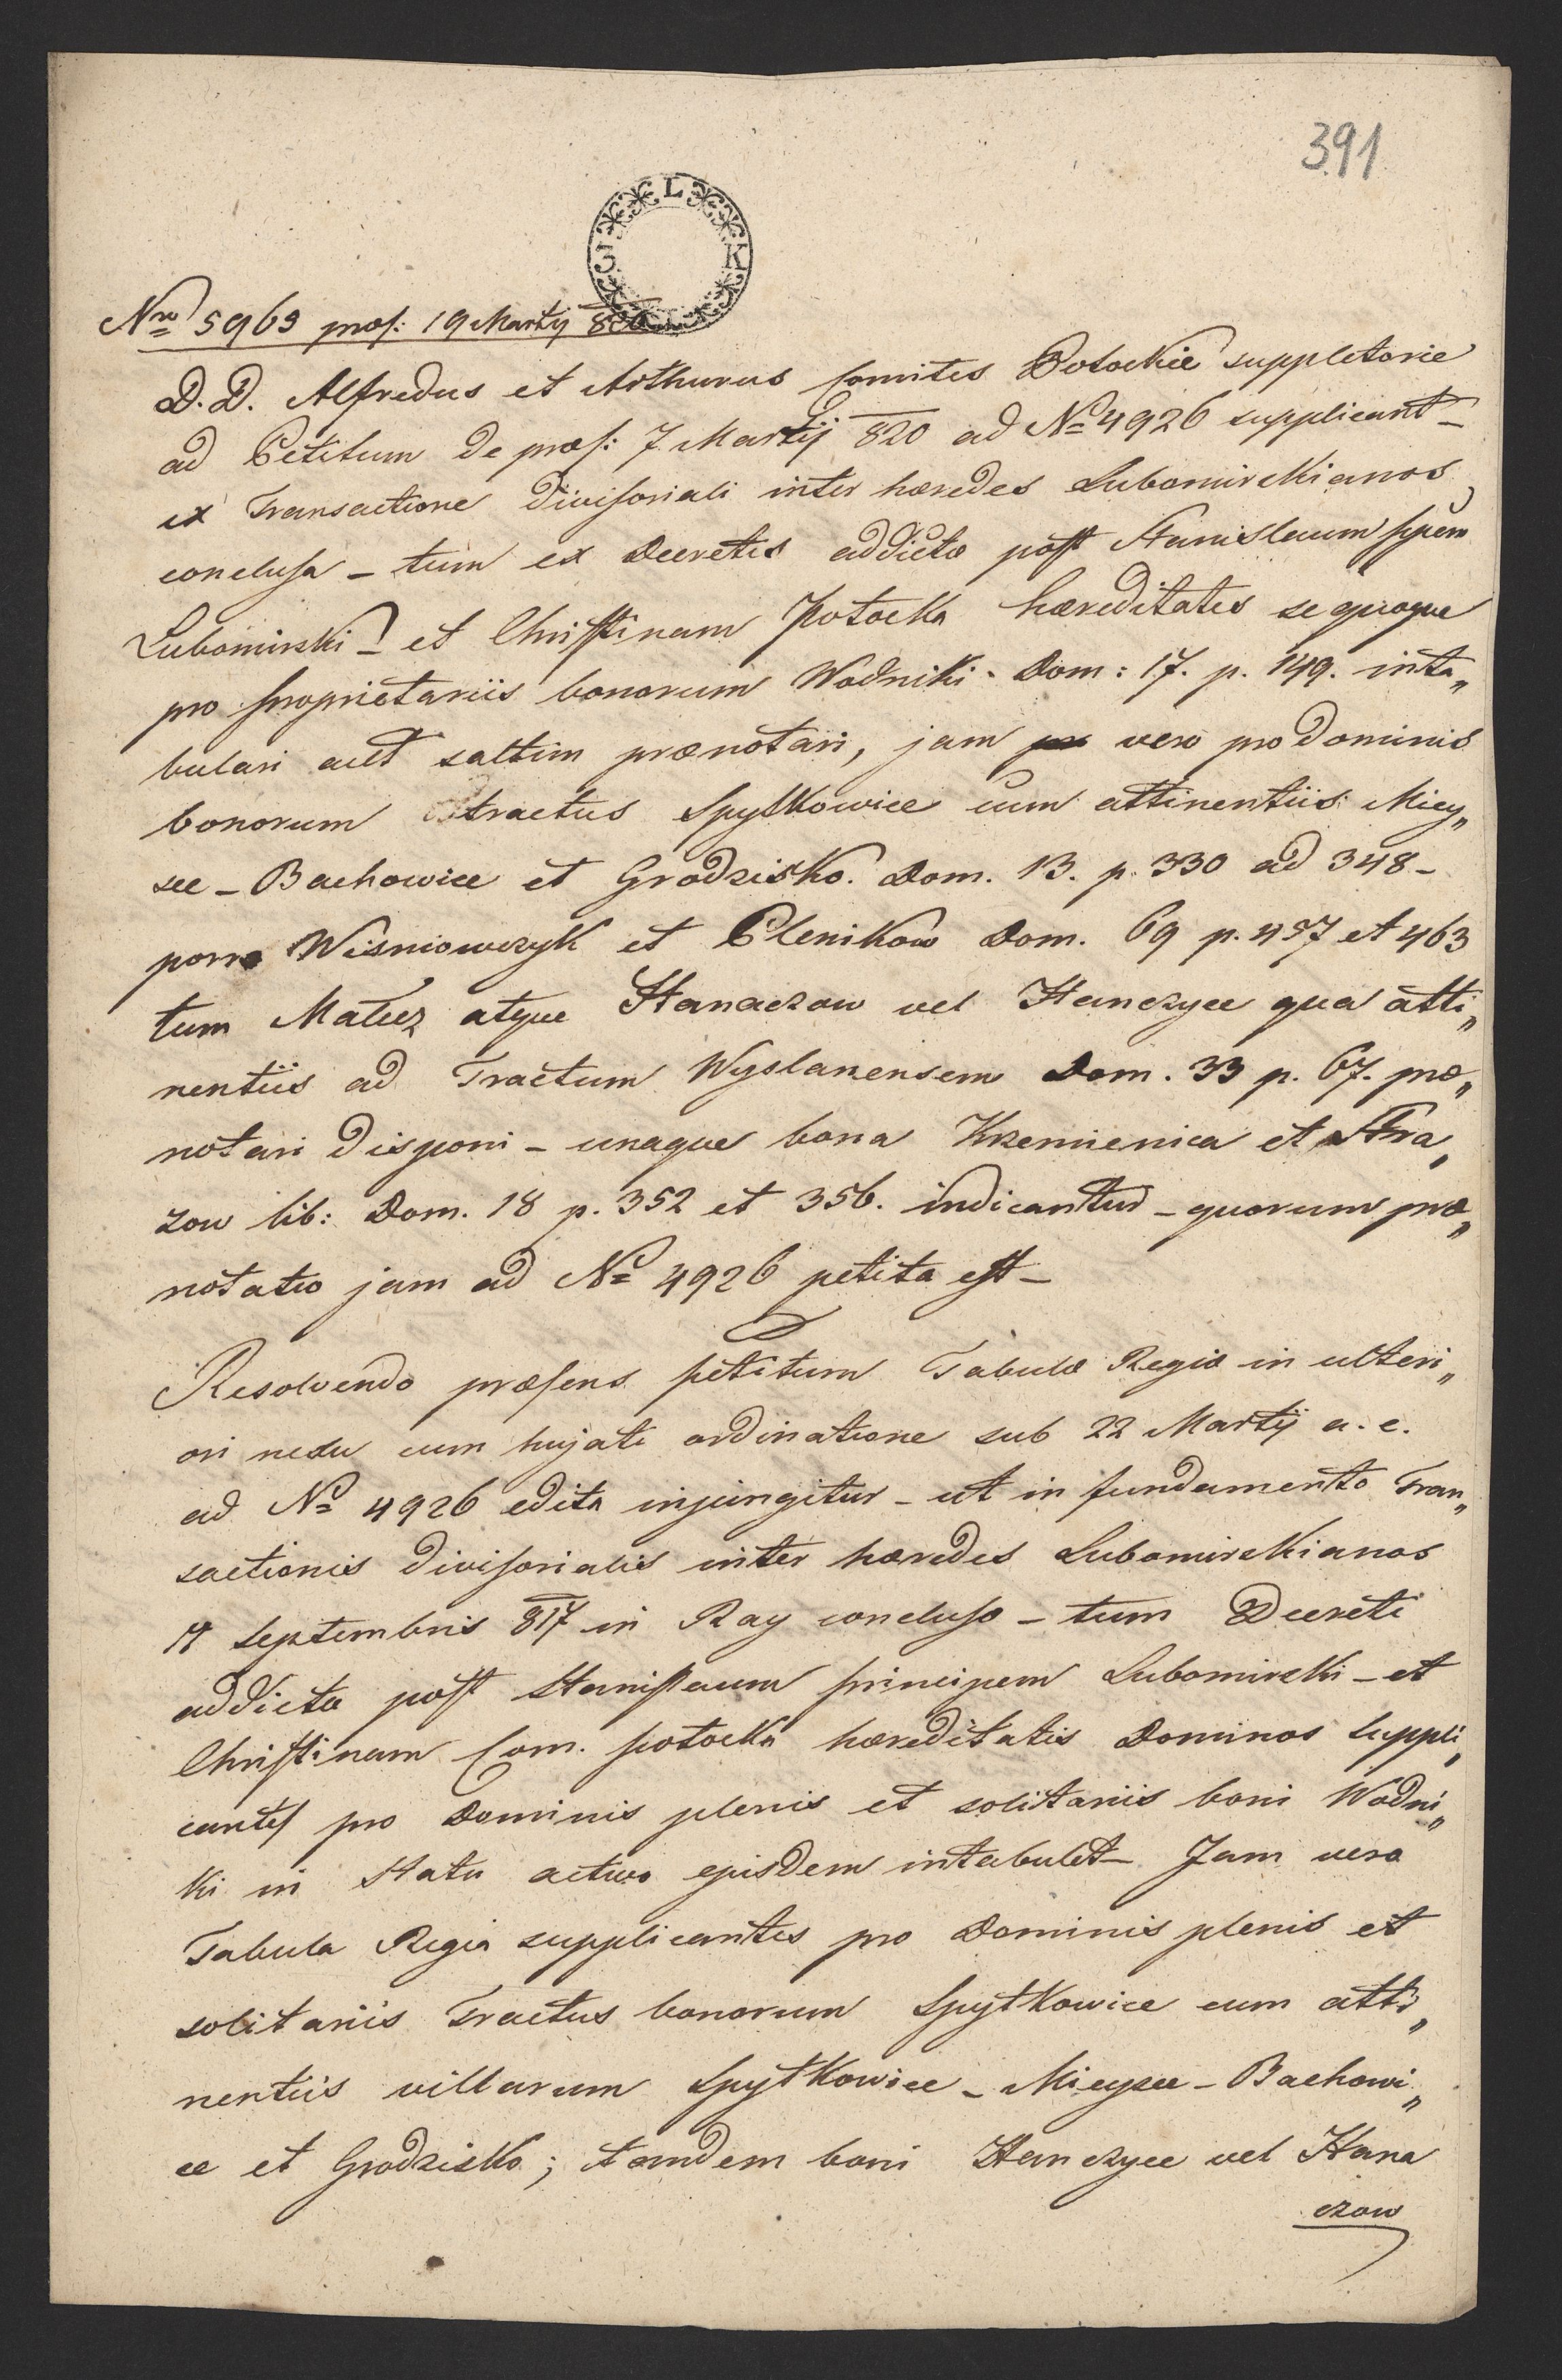 391
L K J L
Nro 5969 præs: 19 Martij 820
D. D. Alfredus et Arthurus Comites Potockie suppletorie
ad Petitum de præs: 7 Martij 820 ad No 4926 supplicant –
ex Transactione divisoriali inter hæredes Lubomirskianos
conclusa – tum ex Decretis addictæ post Stanislaum ppem
Lubomirski – et Christinam Potocka hæreditates se quoque
pro proprietariis bonorum Wodniki – Dom: 17. p. 149. inta„
bulari aut saltim prænotari, jam vero pro dominis
bonorum tractus Spytkowice cum attinentiis: Miey„
sce – Bachowice et Grodzisko. Dom. 13. p. 330 ad 348 –
porro Wisniowczyk et Plenikow Dom. 69 p. 457 et 463
tum Mateez atque Hanaczow vel Hanczyce qua atti„
nentiis ad Tractum Wyslanensem Dom. 33 p. 67. præ„
notari disponi – unaque bona Krzemienica et Stra„
zow lib: Dom. 18 p. 352 et 356. indicantur – quorum præ„
notatio jam ad No 4926 petita est –
Resolvendo præsens petitum Tabulæ Regiæ in ulteri„
ori nexu cum hujati ordinatione sub 22 Martij a. c.
ad No 4926 edita injungitur – ut in fundamento Tran„
sactionis divisorialis inter hæredes Lubomirskianos
14 Septembris 817 in Ray conclusæ – tum Decreti
addictæ post Stanislaum principem Lubomirski – et
Christinam Com. Potocka hæreditatis Dominos suppli„
cantes pro Dominis plenis et solitariis boni Wodni„
ki in statu activo ejusdem intabulet – Jam vero
Tabula Regia supplicantes pro Dominis plenis et
solitariis Tractus bonorum Spytkowice cum atti„
nentiis villarum Spytkowice – Mieysce – Bachowi„
ce et Grodzisko; tandem boni Hanczyce vel Hana
czow